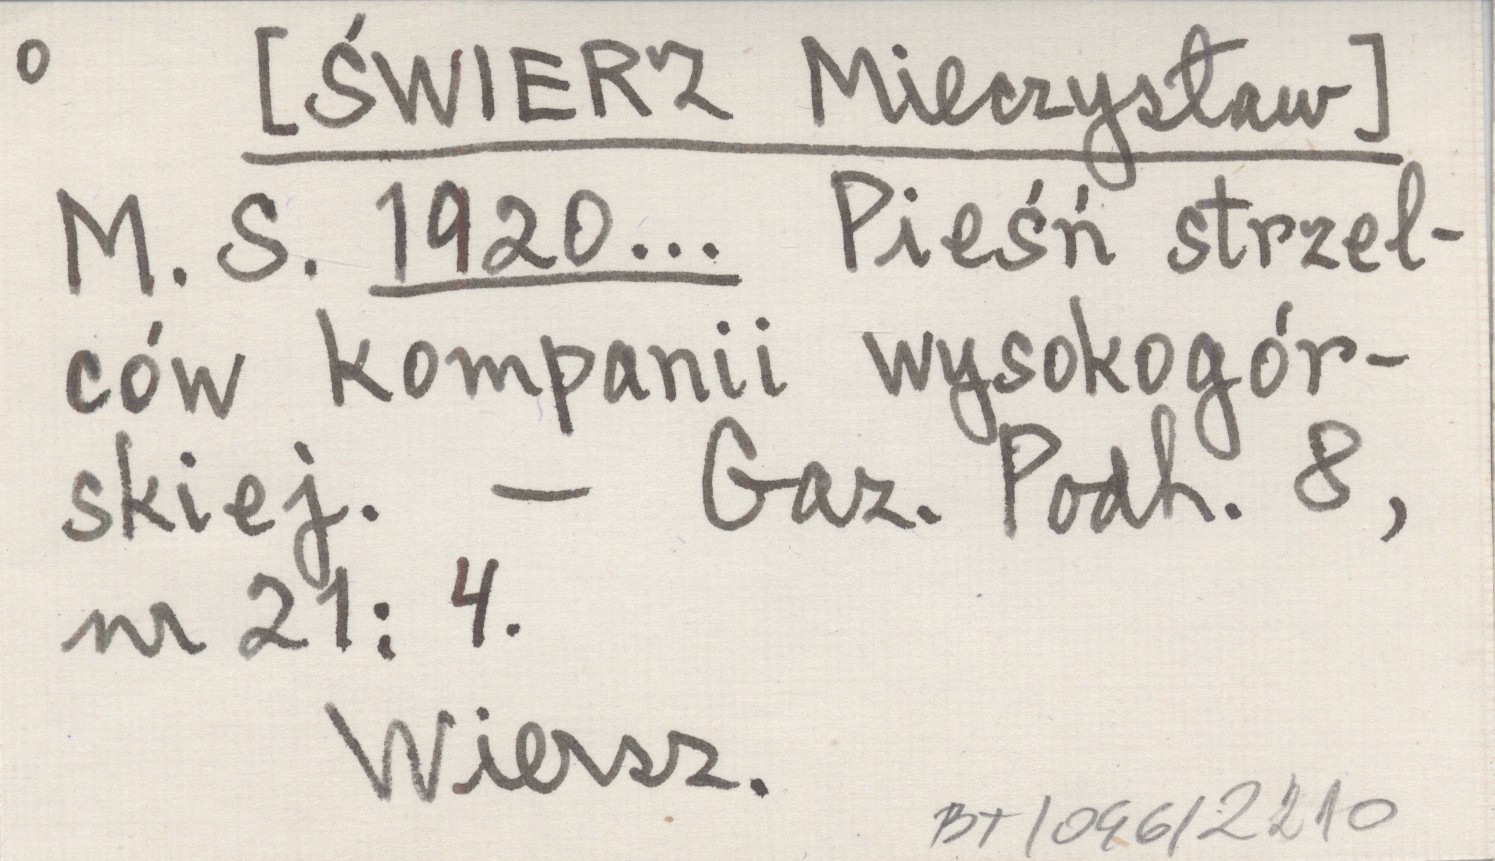 o [ŚWIERZ Mieczysław]
M. S. 1920... Pieśń strzel-
ców kompanii wysokogór-
skiej. — Gaz. Podh. 8,
nr 21: 4.
Wiersz.
BT/096/2210